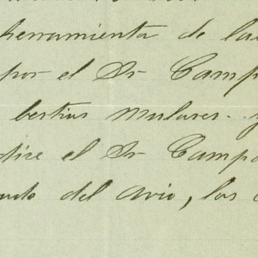 herramienta de la
por el Sr Camp
bestias mulares. y
el Sr Campo
del avio, los